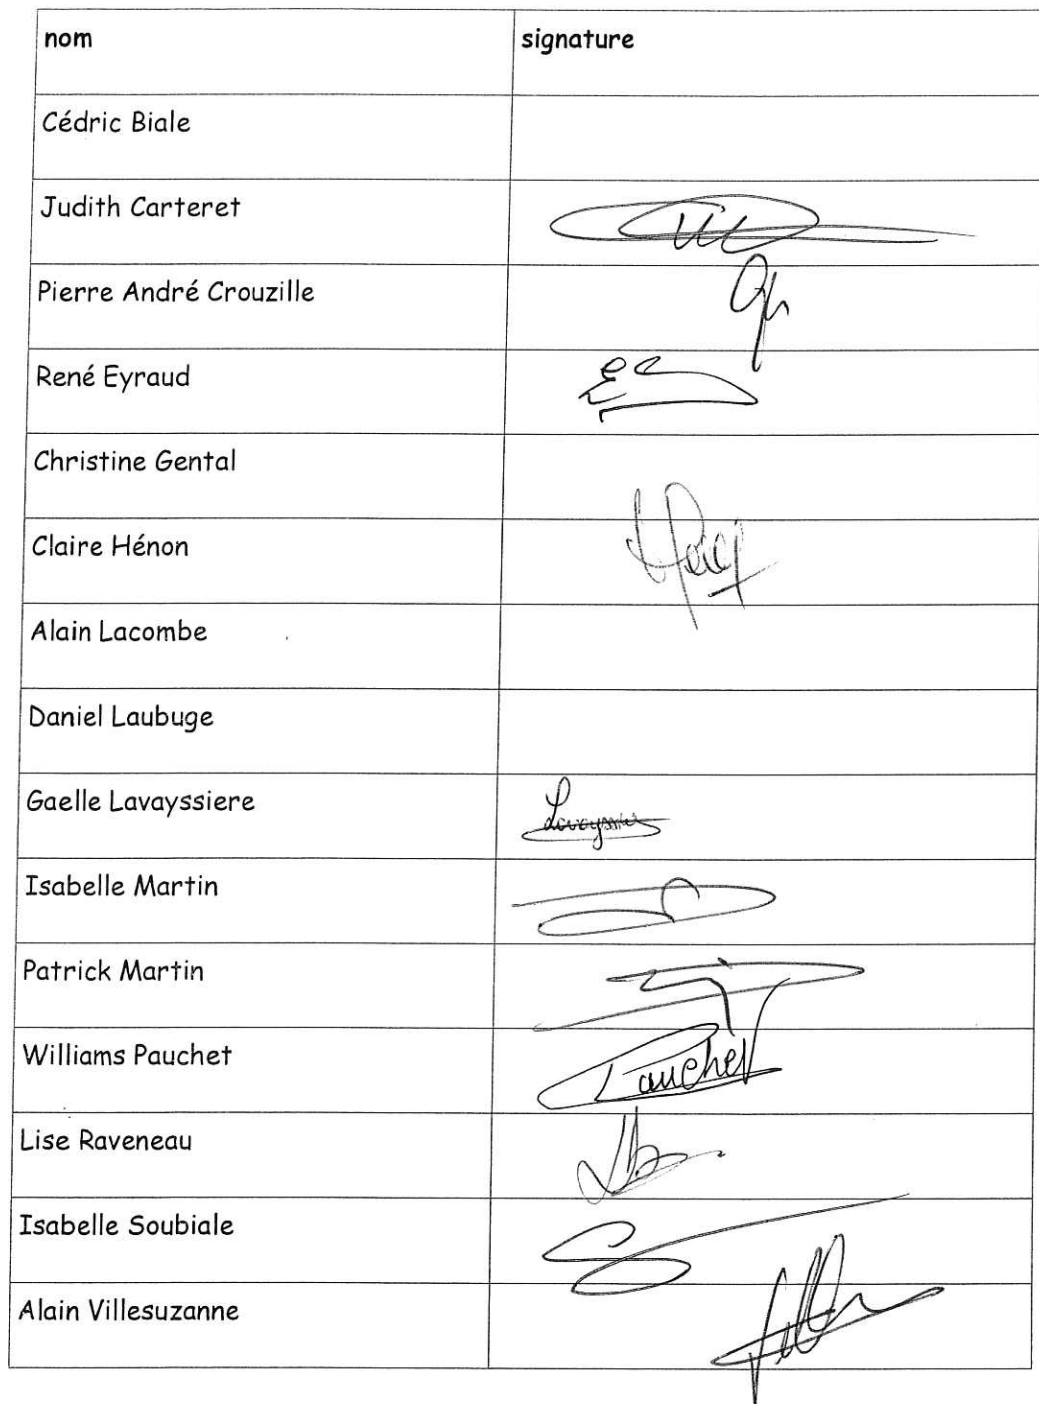 nom signature
Cédric Biale
Judith Carteret
Pierre André Crouzille
René Eyraud
Christine Gental
Claire Hénon
Alain Lacombe
Daniel Laubuge
Gaelle Lavayssiere
Isabelle Martin
Patrick Martin
Williams Pauchet Pauchet
Lise Raveneau
Isabelle Soubiale
Alain Villesuzanne